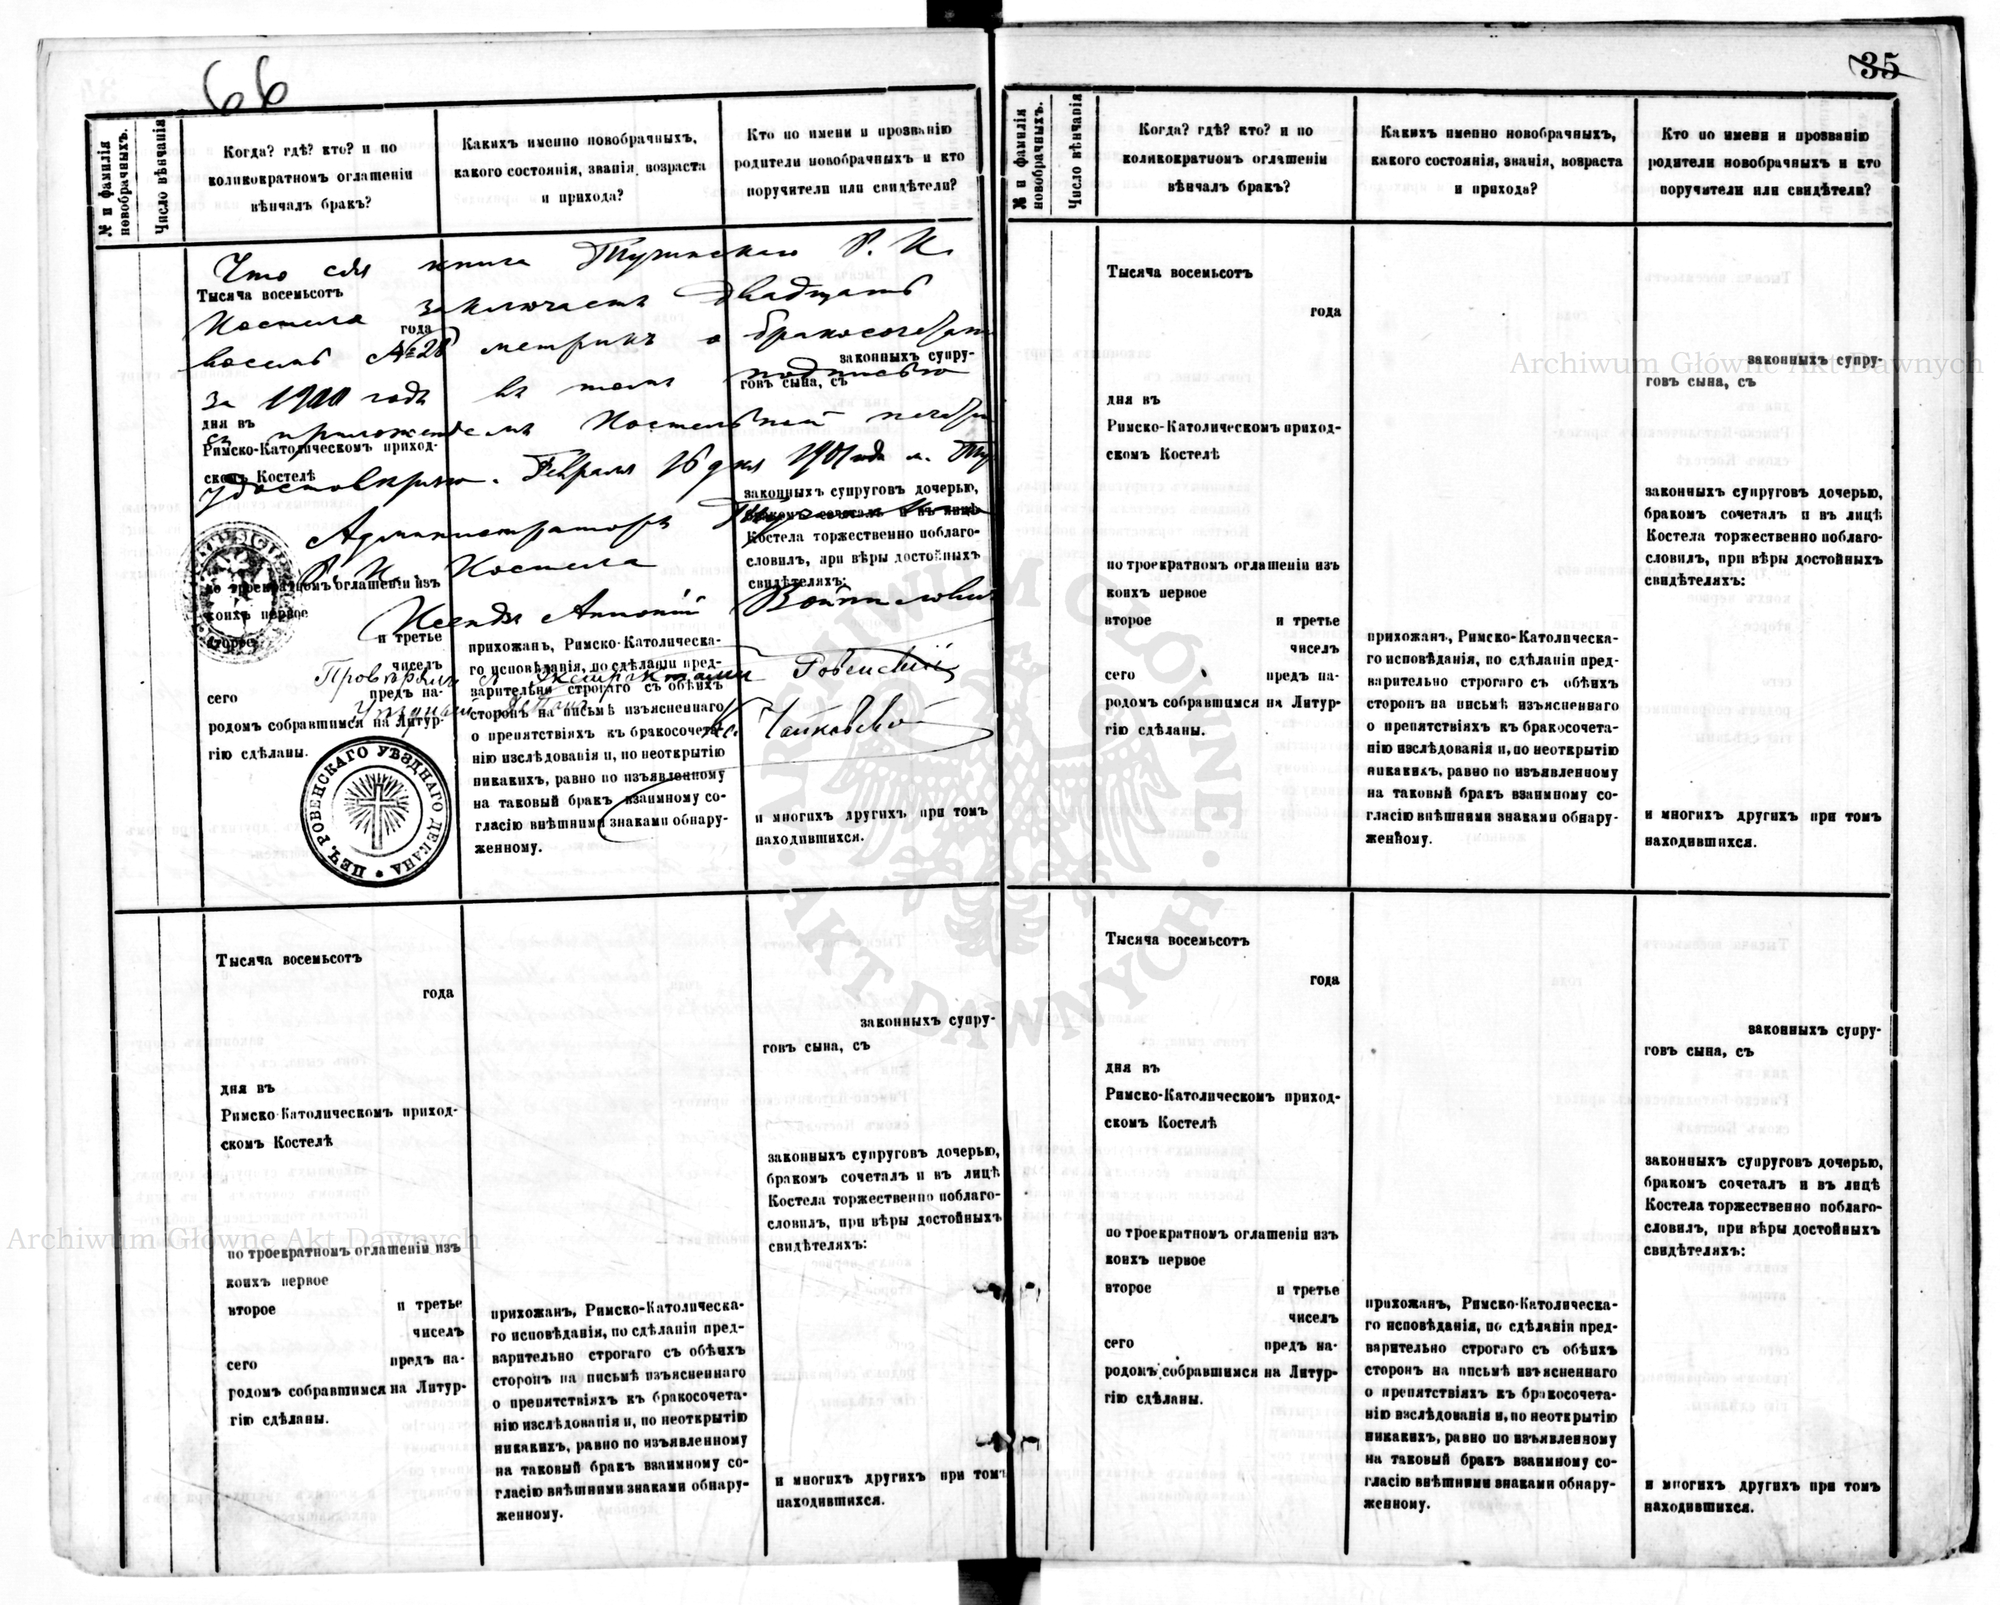 66
№ и фамилія новобрачныхъ.
Число вѣнчанія
Когда? гдѣ? кто? и по
коликократномъ оглашеніи
вѣнчалъ бракъ?
Какихъ именно новобрачныхъ,
какого состоянія, званія, возраста
и прихода?
Кто по имени и прозванію
родители новобрачныхъ и кто
поручители или свидѣтели?
Что сія книга Р. К.
Костела заключаетъ двадцать
восемь №28 метрикъ о
за 1900 годъ въ томъ подписью
съ приложеніемъ Костельной
удостовѣряю. Февраля 16 дня 1901 года м.
Администраторъ
Р. К. Костела
Ксендзъ Антоній
Ровенскій
Тысяча восемьсотъ
года
дня въ
Римско-Католическомъ приход-
скомъ Костелѣ
по троекратномъ оглашеніи изъ
коихъ первое
второе
и третье
чиселъ
сего предъ на-
родомъ собравшимся на Литур-
гію сдѣланы.
ПЕЧ. РОВЕНСКАГО УѢЗДНАГО ДЕКАНА
прихожанъ, Римско-Католическа-
го исповѣданія, по сдѣланіи пред-
варительно строгаго съ обѣихъ
сторонъ на письмѣ изъясненнаго
о препятствіяхъ къ бракосочета-
нію изслѣдованія и, по неоткрытію
никакихъ, равно по изъявленному
на таковый бракъ взаимному со-
гласію внѣшними знаками обнару-
женному.
законныхъ супру-
говъ сына, съ
законныхъ супруговъ дочерью,
бракомъ сочеталъ и въ лицѣ
Костела торжественно поблаго-
словилъ, при вѣры достойныхъ
свидѣтеляхъ:
и многихъ другихъ при томъ
находившихся.
Тысяча восемьсотъ
года
дня въ
Римско-Католическомъ приход-
скомъ Костелѣ
по троекратномъ оглашеніи изъ
коихъ первое
второе и третье
чиселъ
сего предъ на-
родомъ собравшимся на Литур-
гію сдѣланы.
прихожанъ, Римско-Католическа-
го исповѣданія, по сдѣланіи пред-
варительно строгаго съ обѣихъ
сторонъ на письмѣ изъясненнаго
о препятствіяхъ къ бракосочета-
нію изслѣдованія и, по неоткрытію
никакихъ, равно по изъявленному
на таковый бракъ взаимному со-
гласію внѣшними знаками обнару-
женному.
законныхъ супру-
говъ сына, съ
законныхъ супруговъ дочерью,
бракомъ сочеталъ и въ лицѣ
Костела торжественно поблаго-
словилъ, при вѣры достойныхъ
свидѣтеляхъ:
и многихъ другихъ при томъ
находившихся.
35
№ и фамилія новобрачныхъ.
Число вѣнчанія
Когда? гдѣ? кто? и по
коликократномъ оглашеніи
вѣнчалъ бракъ?
Какихъ именно новобрачныхъ,
какого состоянія, званія, возраста
и прихода?
Кто по имени и прозванію
родители новобрачныхъ и кто
поручители или свидѣтели?
Тысяча восемьсотъ
года
дня въ
Римско-Католическомъ приход-
скомъ Костелѣ
по троекратномъ оглашеніи изъ
коихъ первое
второе и третье
чиселъ
сего предъ на-
родомъ собравшимся на Литур-
гію сдѣланы.
прихожанъ, Римско-Католическа-
го исповѣданія, по сдѣланіи пред-
варительно строгаго съ обѣихъ
сторонъ на письмѣ изъясненнаго
о препятствіяхъ къ бракосочета-
нію изслѣдованія и, по неоткрытію
никакихъ, равно по изъявленному
на таковый бракъ взаимному со-
гласію внѣшними знаками обнару-
женному.
законныхъ супру-
говъ сына, съ
законныхъ супруговъ дочерью,
бракомъ сочеталъ и въ лицѣ
Костела торжественно поблаго-
словилъ, при вѣры достойныхъ
свидѣтеляхъ:
и многихъ другихъ при томъ
находившихся.
Тысяча восемьсотъ
года
дня въ
Римско-Католическомъ приход-
скомъ Костелѣ
по троекратномъ оглашеніи изъ
коихъ первое
второе и третье
чиселъ
сего предъ на-
родомъ собравшимся на Литур-
гію сдѣланы.
прихожанъ, Римско-Католическа-
го исповѣданія, по сдѣланіи пред-
варительно строгаго съ обѣихъ
сторонъ на письмѣ изъясненнаго
о препятствіяхъ къ бракосочета-
нію изслѣдованія и, по неоткрытію
никакихъ, равно по изъявленному
на таковый бракъ взаимному со-
гласію внѣшними знаками обнару-
женному.
законныхъ супру-
говъ сына, съ
законныхъ супруговъ дочерью,
бракомъ сочеталъ и въ лицѣ
Костела торжественно поблаго-
словилъ, при вѣры достойныхъ
свидѣтеляхъ:
и многихъ другихъ при томъ
находившихся.
Archiwum Główne Akt Dawnych
Archiwum Główne Akt Dawnych
ARCHIWUM GŁÓWNE
AKT DAWNYCH